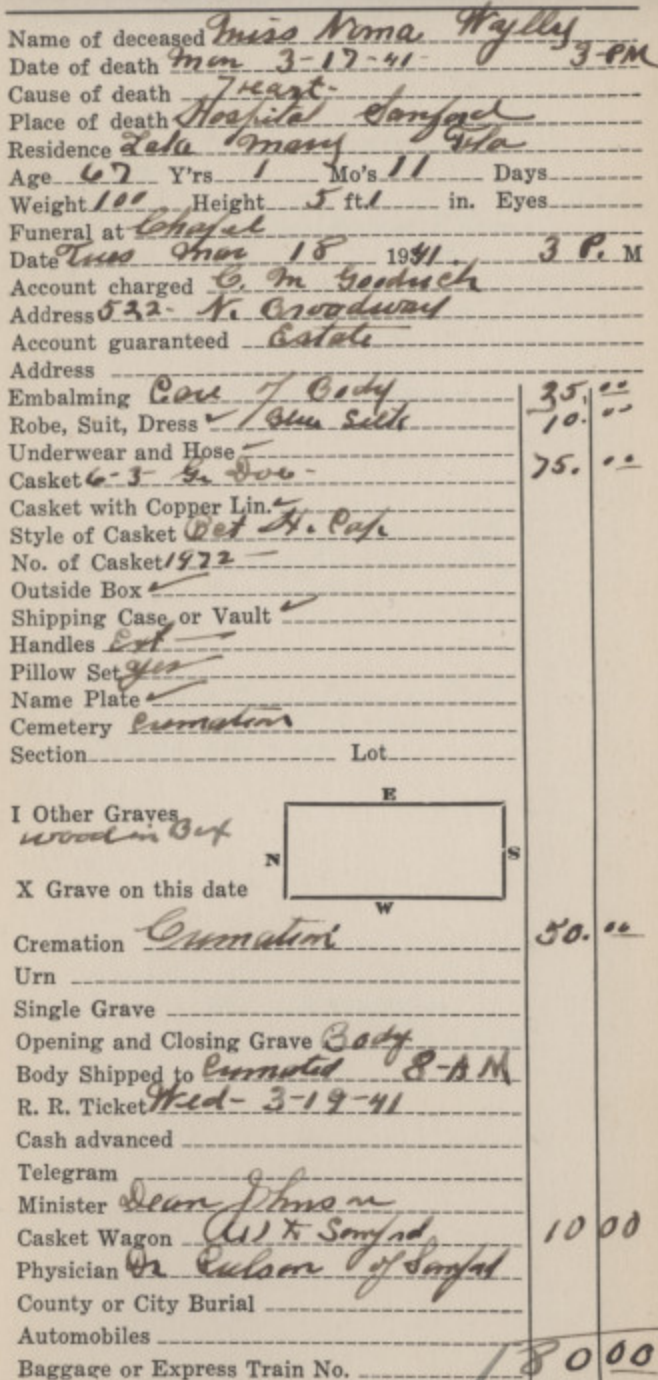 Name of deceased Miss Nima Wylly
Date of death Mon 3-17-41 3-PM
Cause of death Heart-
Place of death Hospital Sanford
Residence Lake Mary Fla
Age 67 Y'rs 1 Mo's 11 Days
Weight 100 Height 5 ft. 1 in. Eyes
Funeral at Chapel
Date Tues Mar 18 1941. 3 P. M
Account charged C. M Goodrich
Address 522- N. Broadway
Account guaranteed Estate
Address
Embalming Care of Body 35.00
Robe, Suit, Dress ✓ Blue Silk 10.00
Underwear and Hose
Casket 6-3 Gr. Doe - 75.00
Casket with Copper Lin. ✓
Style of Casket Oct H. Cap.
No. of Casket 1972 —
Outside Box ✓
Shipping Case or Vault ✓
Handles Ext —
Pillow Set yes
Name Plate ✓
Cemetery Cremation
Section Lot
E
I Other Graves
wooden Box
N S
X Grave on this date
W
Cremation Cremation 50.00
Urn
Single Grave
Opening and Closing Grave Body
Body Shipped to Cremated 8-AM
R. R. Ticket Wed- 3-19-41
Cash advanced
Telegram
Minister Dean Johnson
Casket Wagon Sanford 10 00
Physician Dr of Sanford
County or City Burial
Automobiles
Baggage or Express Train No. 180 00